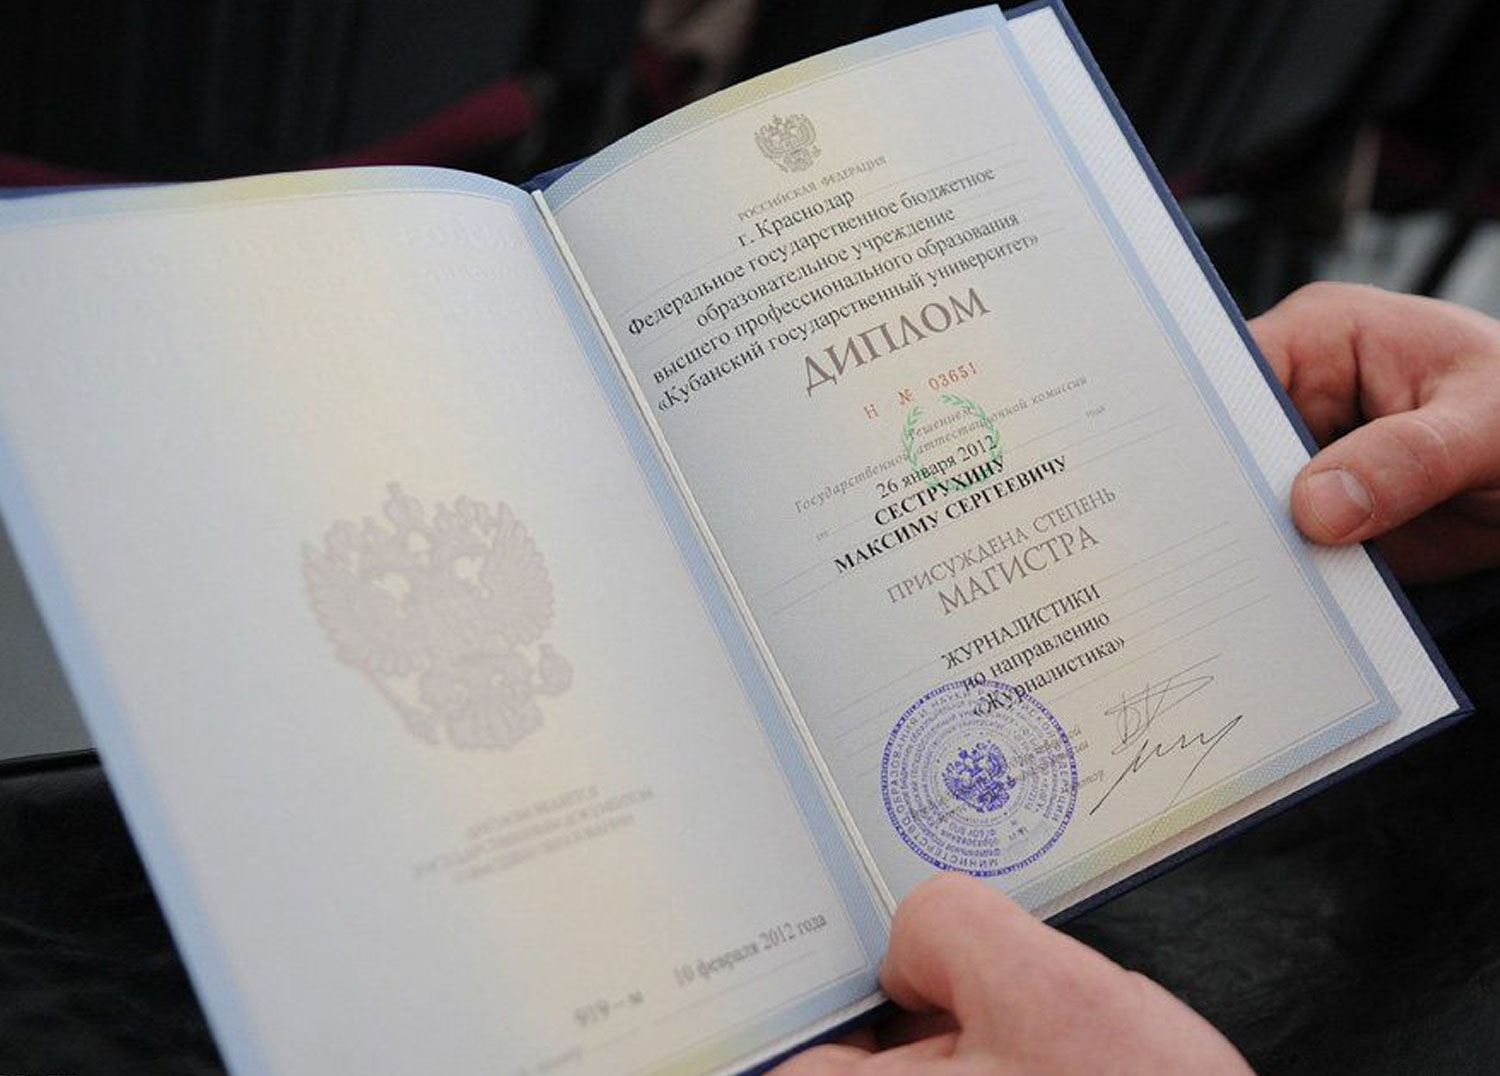 ДИПЛОМ ЯВЛЯЕТСЯ
ГОСУДАРСТВЕННЫМ ДОКУМЕНТОМ
О ВЫСШЕМ ОБРАЗОВАНИИ
919-м
10 февраля 2012 года
РОССИЙСКАЯ ФЕДЕРАЦИЯ
г. Краснодар
Федеральное государственное бюджетное
образовательное учреждение
высшего профессионального образования
«Кубанский государственный университет»
ДИПЛОМ
Н № 03651
Решением
Государственной аттестационной комиссии
от 26 января 2012 года
СЕСТРУХИНУ
МАКСИМУ СЕРГЕЕВИЧУ
ПРИСУЖДЕНА СТЕПЕНЬ
МАГИСТРА
ЖУРНАЛИСТИКИ
по направлению
«Журналистика»